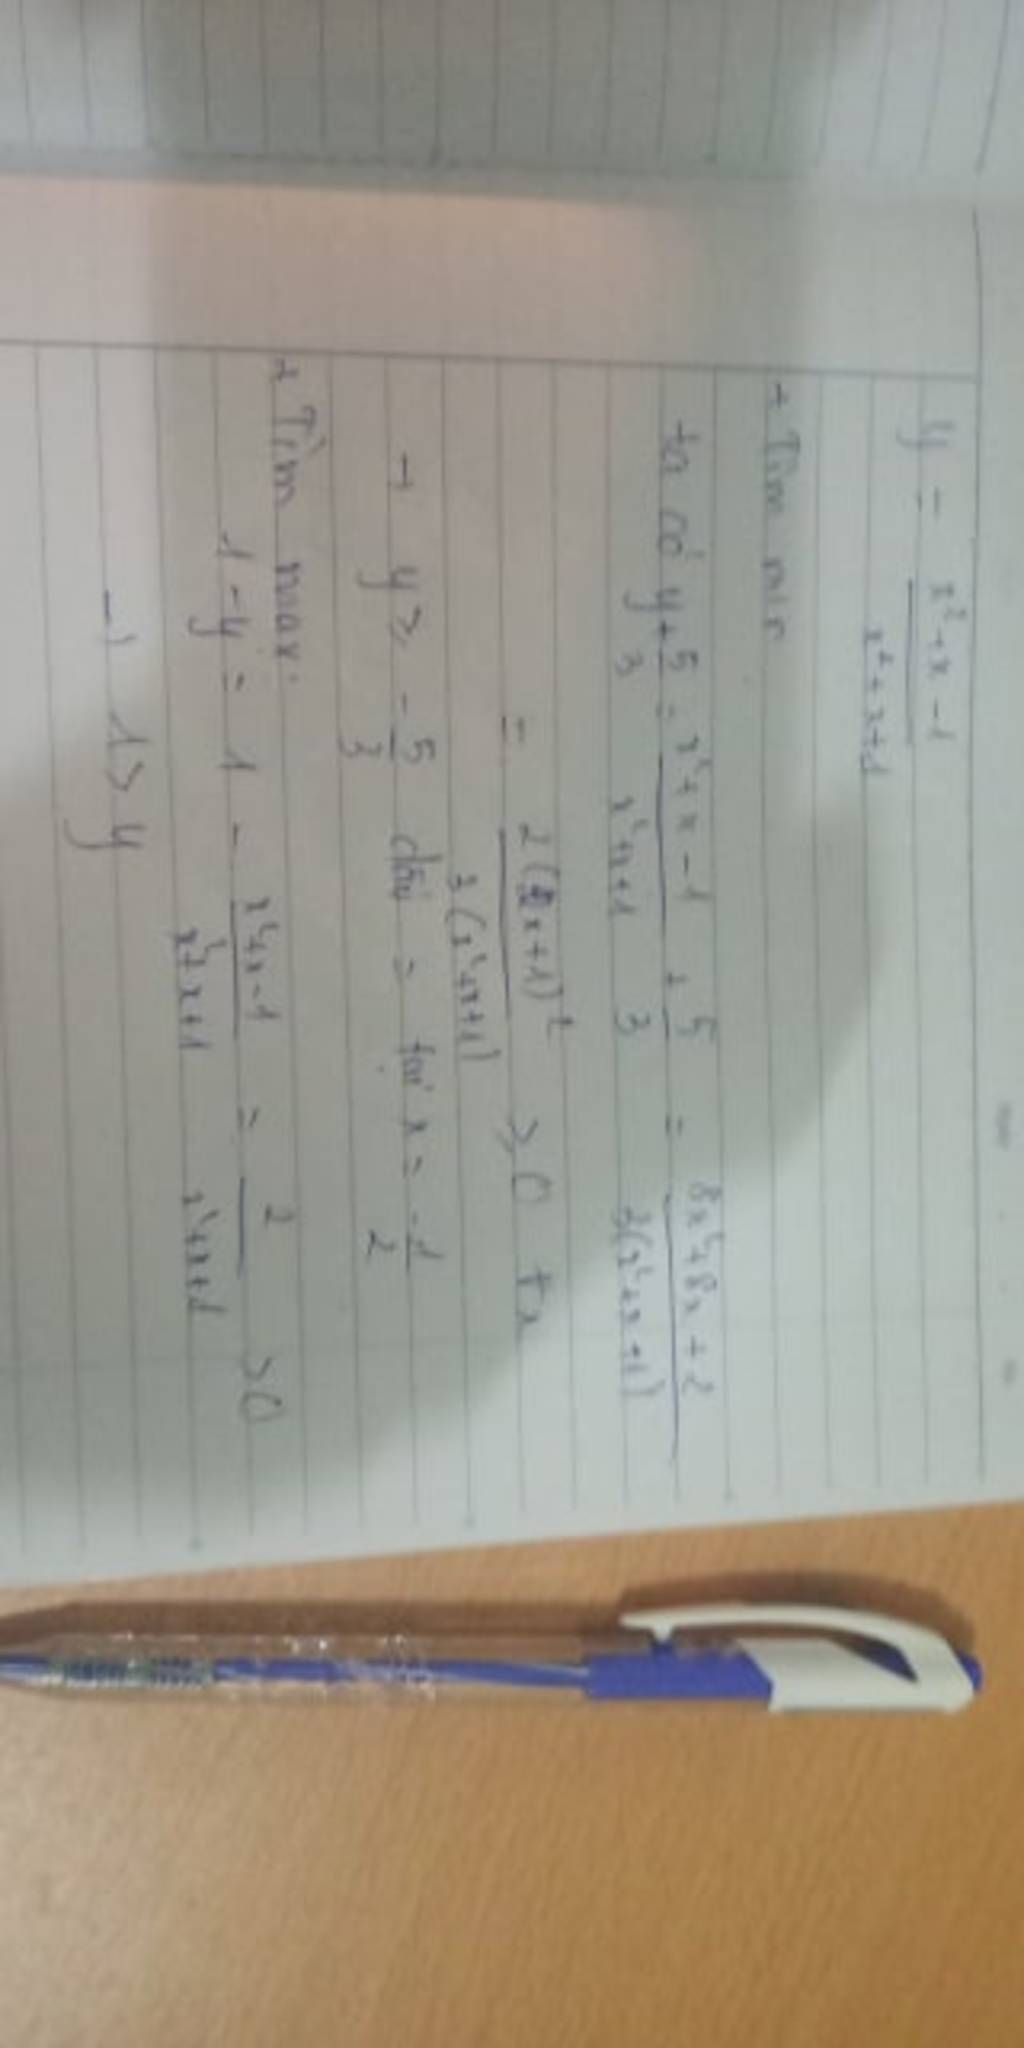 y = (x² + x - 1)/(x² + x + 1)
+ Tìm min
ta có y + 5/3 = (x² + x - 1)/(x² + x + 1) + 5/3 = (8x² + 8x + 2)/(3(x² + x + 1))
= 2(2x + 1)²/(3(x² + x + 1)) ≥ 0 ∀x
→ y ≥ -5/3 dấu = tại x = -1/2
+ Tìm max
1 - y = 1 - (x² + x - 1)/(x² + x + 1) = 2/(x² + x + 1) > 0
→ 1 > y